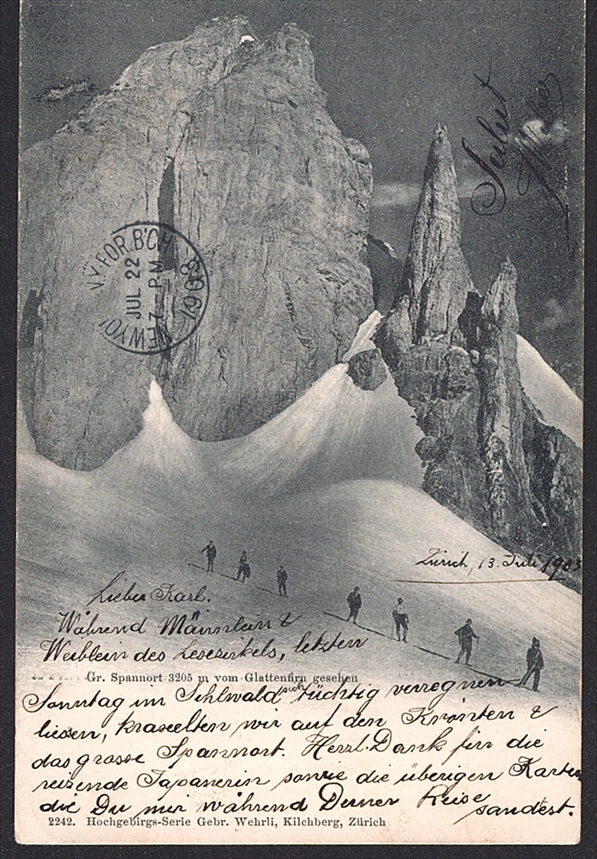 Seibert
NEW YORK, N.Y. FOR. B'CH
JUL 22
7 - PM
Zürich, 13. Juli 1903
Lieber Karl.
Während Männlein &
Weiblein des Lesezirkels, letzten
Gr. Spannort 3205 m vom Glattenfirn gesehen
Sonntag im Sihlwald sich tüchtig verregnen
liessen, kraxelten wir auf den Krönten &
das grosse Spannort. Herzl. Dank für die
reizende Japanerin sowie die übrigen Karten
die Du mir während Deiner Reise
sandest.
2242. Hochgebirgs-Serie Gebr. Wehrli, Kilchberg, Zürich